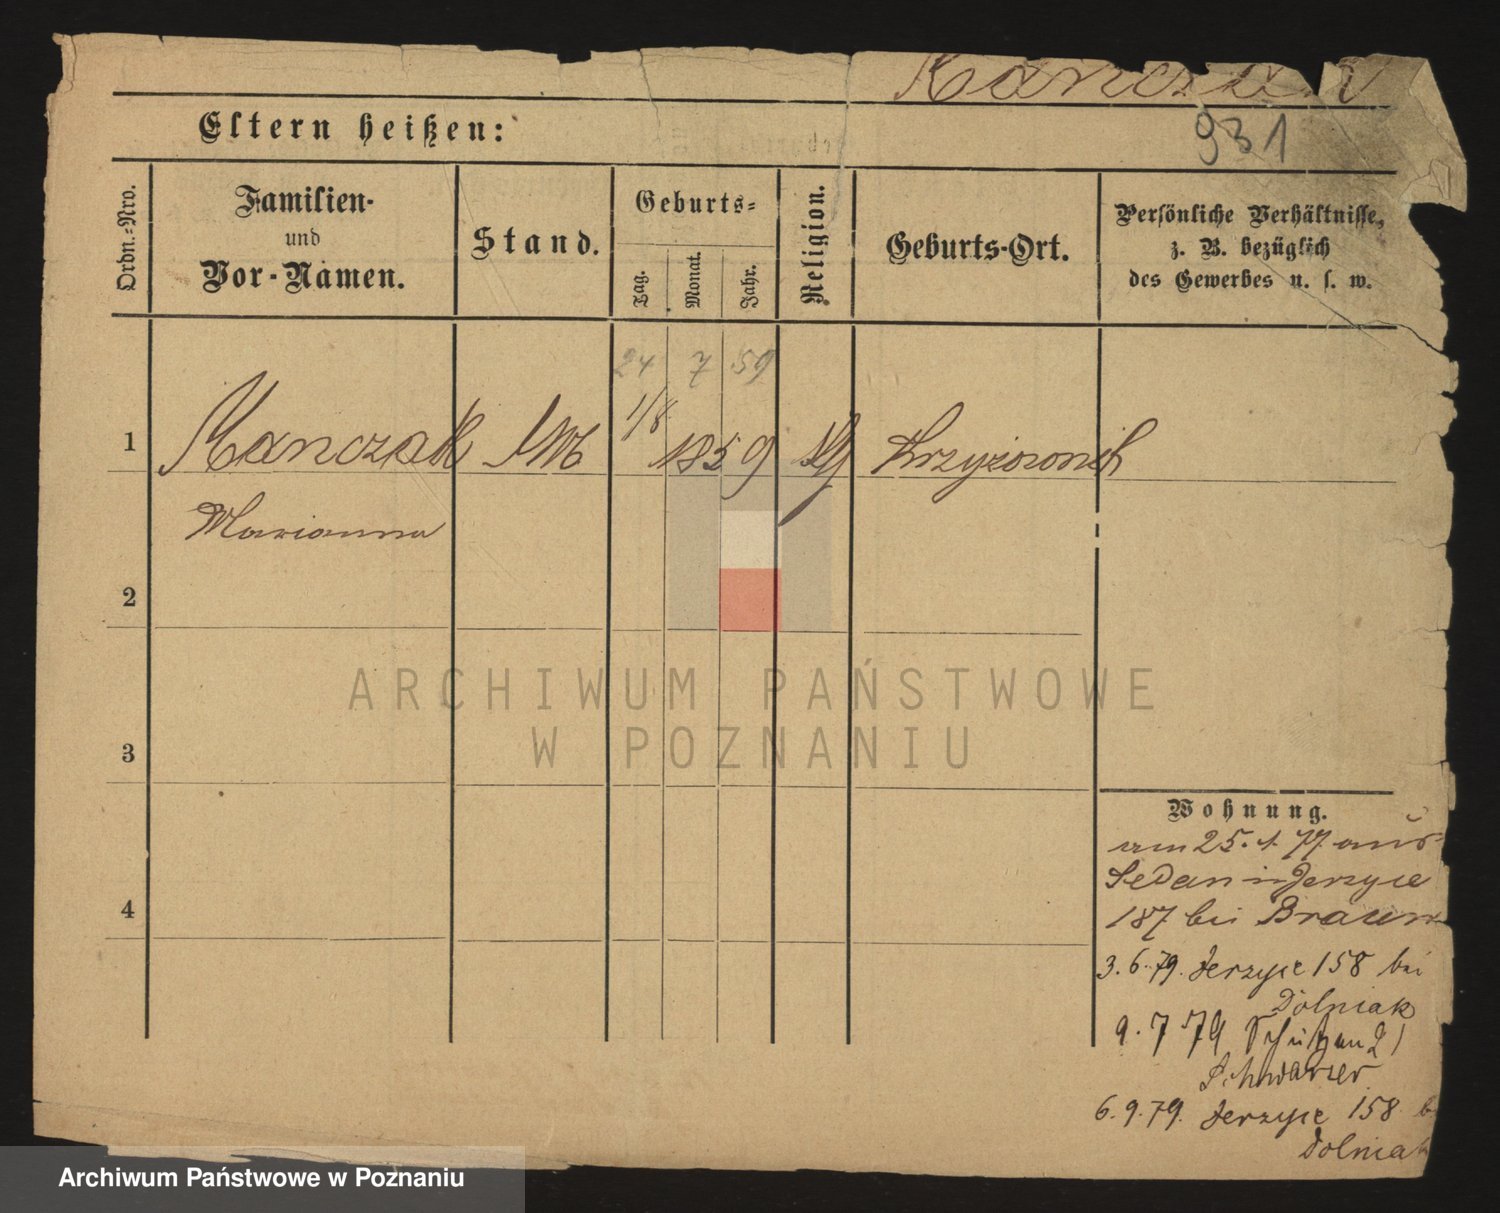 Kanczak
931
Eltern heißen:
Ordn.-Nro.
Familien-
und
Vor-Namen.
Stand.
Geburts-
Tag.
Monat.
Jahr.
Religion.
Geburts-Ort.
Persönliche Verhältnisse,
z. B. bezüglich
des Gewerbes u. s. w.
24 7 59
1/8
1 Kanczak 1859 Krzyżownik
Marianna
2
3
4
ARCHIWUM PAŃSTWOWE
W POZNANIU
Wohnung.
am 25. 1. 77 aus
Sedan in Jerzyce
187 bei Braun
3. 6. 79. Jerzyce 158 bei
Dolniak
9. 7 79 Schützen 21
Schwarzer
6. 9. 79. Jerzyce 158 b
Dolniak
Archiwum Państwowe w Poznaniu